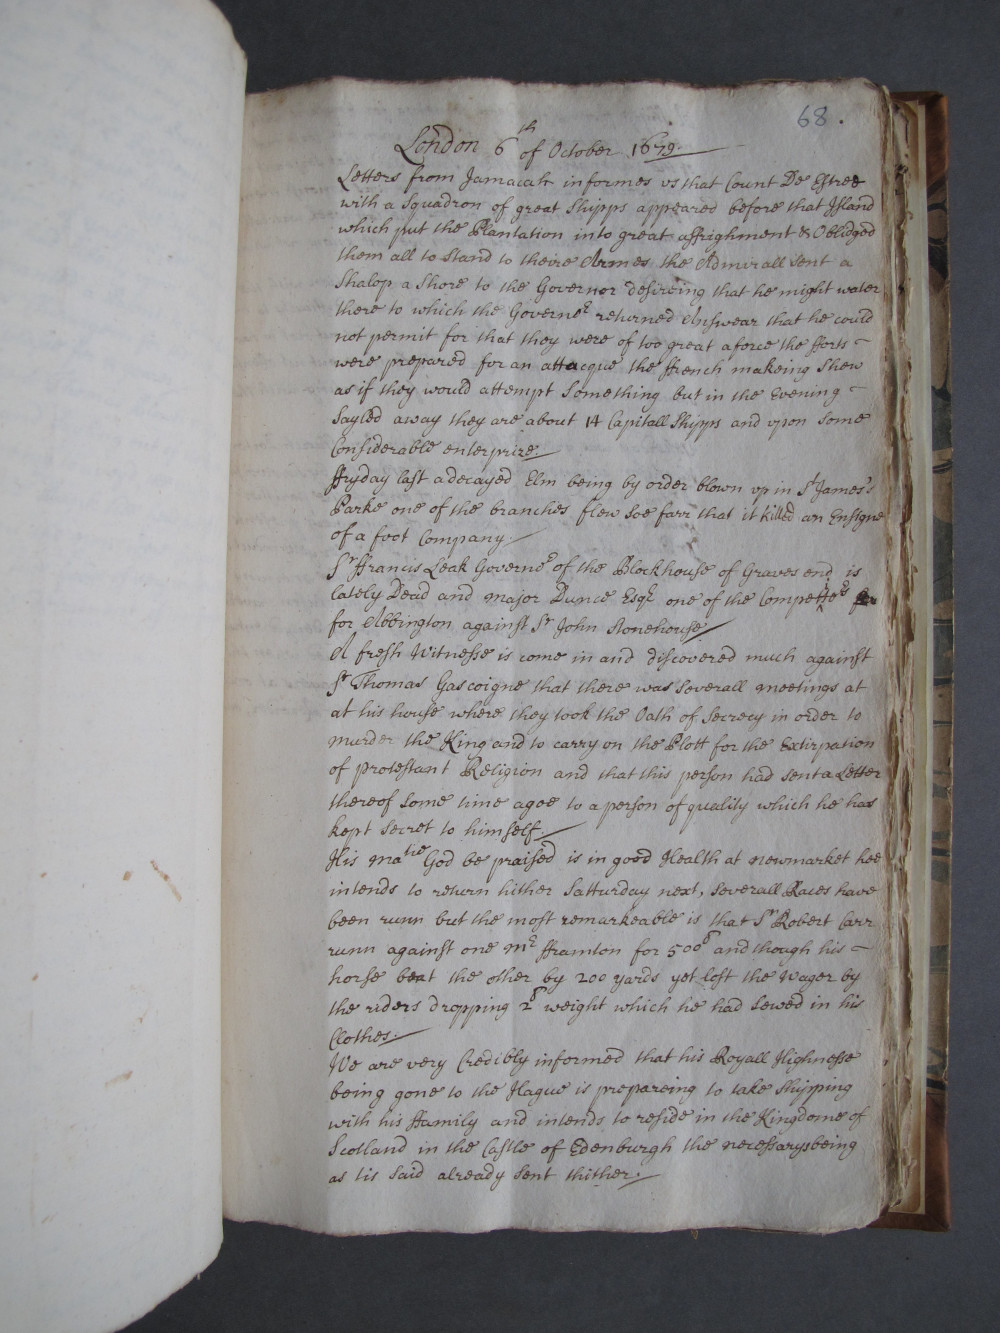 68.
London 6th of October 1679.
Letters from Jamacah informes us that Count De Estree
with a Squadron of great Shipps appeared before that Island
which put the Plantation into great affrighment & Oblidged
them all to stand to theire Armes the Admirall sent a
Shalop a Shore to the Governor desireing that he might water
there to which the Governor returned Answear that he could
not permit for that they were of too great a force the fforts
were prepared for an attacque the ffrench makeing Shew
as if they would attempt Something but in the Evening
Sayled away they are about 14 Capitall Shipps and upon some
Considerable enterprize.
ffryday last a decayed Elm being by order blown up in St James's
Parke one of the branches flew soe farr that it killed an Ensigne
of a foot Company.
Sr ffrancis Leak Governor of the Blockhouse of Graves end is
lately Dead and Major Dunce Esqr one of the Competitors
for Abbington against Sr John Stonehouse
A fresh Witnesse is come in and discovered much against
Sr Thomas Gascoigne that there was Severall meetings at
at his house where they took the Oath of Secrecy in order to
murder the King and to carry on the Plott for the Extirpation
of protestant Religion and that this person had sent a Letter
thereof some time agoe to a person of quality which he has
kept secret to himself.
His Matie God be praised is in good Health at Newmarket hee
intends to return hither Satturday next, Severall Races have
been runn but the most remarkeable is that Sr Robert Carr
runn against one Mr fframton for 500l and though his
horse beat the other by 200 yards yet lost the Wager by
the riders dropping 2l weight which he had Sewed in his
Clothes.
We are very Credibly informed that his Royall Highnesse
being gone to the Hague is prepareing to take Shipping
with his ffamily and intends to reside in the Kingdome of
Scotland in the Castle of Edenburgh the necessarys being
as tis said already sent thither.